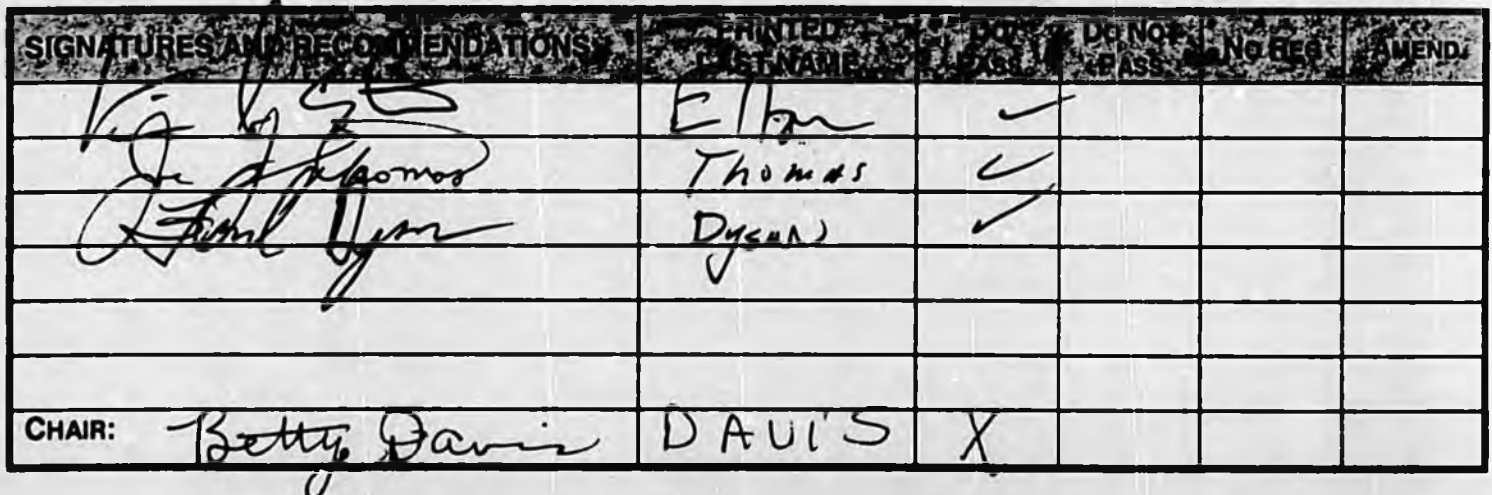 SIGNATURES AND RECOMMENDATIONS PRINTED LAST NAME DO PASS DO NOT PASS NO REC AMEND
Thomas Thomas ✓
Dyson Dyson ✓
CHAIR: Betty Davis DAVIS X